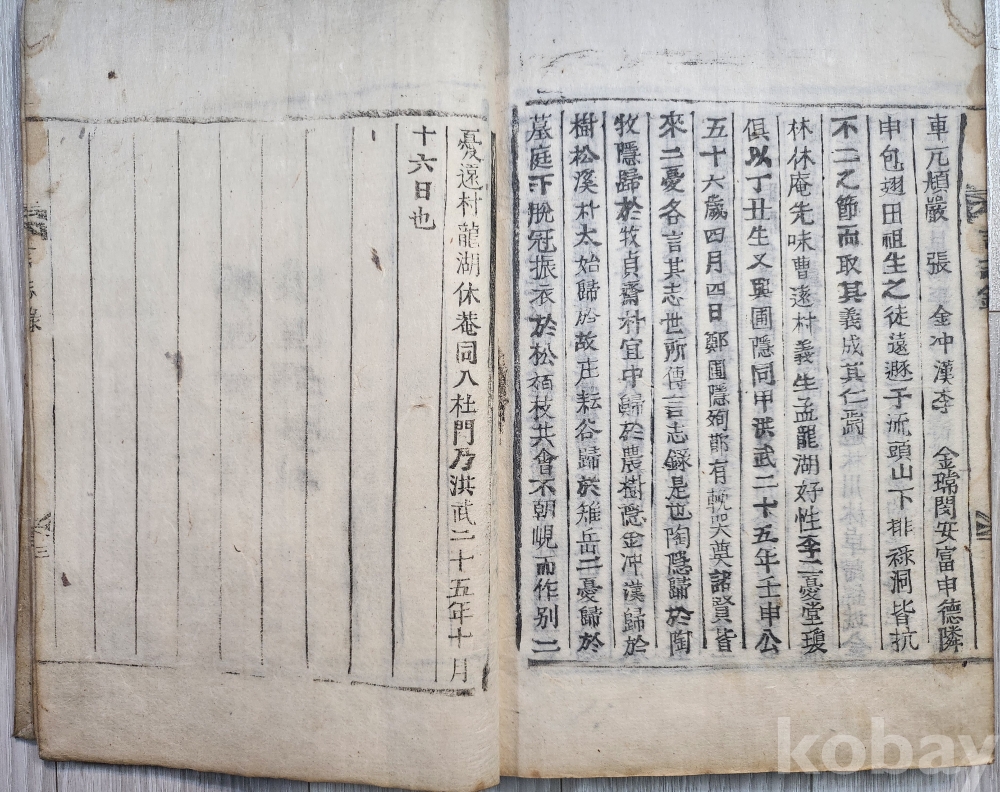 車元頫嚴 張 金冲漢李 金瑞閔安富申德隣
申包翅田祖生之徒遠遯于流頭山下排祿洞皆抗
不二之節而取其義成其仁焉
林休庵先味曹遠村義生孟龍湖好性李二憂堂瓊
俱以丁丑生又與圃隱同甲洪武二十五年壬申公
五十六歲四月四日鄭圃隱殉節有輓哭奠諸賢皆
來二憂各言其志世所傳言志錄是也陶隱歸於陶
牧隱歸於牧貞齋朴宜中歸於農樹隱金冲漢歸於
樹松溪朴太始歸於故庄耘谷歸於雉岳二憂歸於
墓庭下脫冠振衣於松栢枝共會不朝峴而作別二
憂遠村龍湖休菴同入杜門乃洪武二十五年十月
十六日也
言志錄
三
kobay